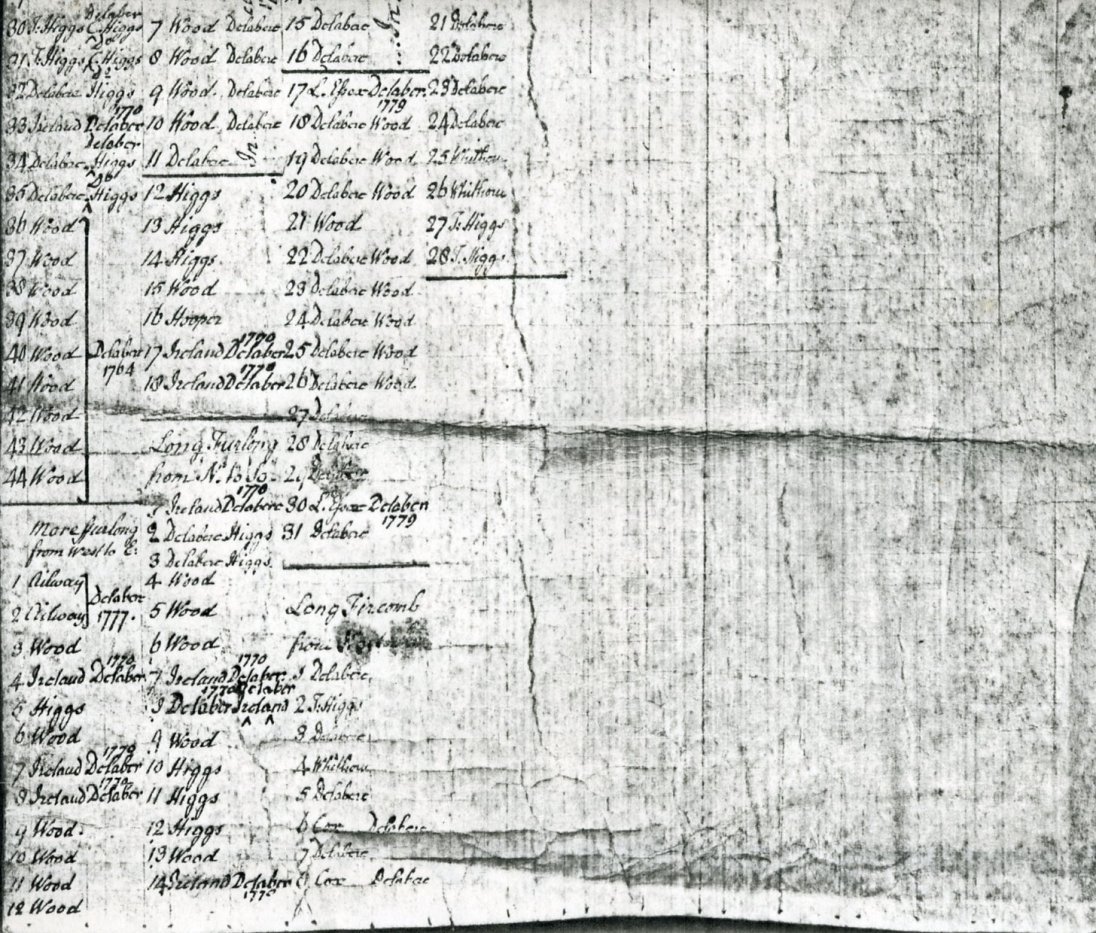 Delaber
30 J. Higgs C. Higgs
Do
31 J. Higgs C. Higgs
Do
32 Delabere Higgs
1770
33 Ireland Delaber
Delaber
34 Delabere Higgs
Do
35 Delabere Higgs
36 Wood
37 Wood
38 Wood
39 Wood
40 Wood Delaber
41 Wood 1764
42 Wood
43 Wood
44 Wood
More furlong
from West to E:
1 Ailway
2 Ailway Delaber 1777.
3 Wood
1770
4 Ireland Delaber
5 Higgs
6 Wood
1770
7 Ireland Delaber
1770
8 Ireland Delaber
9 Wood
10 Wood
11 Wood
12 Wood
7 Wood Delabere
8 Wood Delabere
9 Wood Delabere
10 Wood Delabere
11 Delabere In
12 Higgs
13 Higgs
14 Higgs
15 Wood
16 Hooper
1770
17 Ireland Delaber
1770
18 Ireland Delaber
Long Furlong
from N. to So:
1770
1 Ireland Delabere
2 Delabere Higgs
3 Delabere Higgs
4 Wood
5 Wood
6 Wood
1770
7 Ireland Delaber
1770 Delaber
8 Delaber Ireland
9 Wood
10 Higgs
11 Higgs
12 Higgs
13 Wood
14 Ireland Delaber
1770
15 Delabere
16 Delabere In
17 L. Essex Delaber
1779
18 Delabere Wood
19 Delabere Wood
20 Delabere Wood
21 Wood
22 Delabere Wood
23 Delabere Wood
24 Delabere Wood
25 Delabere Wood
26 Delabere Wood
27 Delabere
28 Delabere
29 Delabere
30 L. Essex Delaber
1779
31 Delabere
Long Fircomb
from
1 Delabere
2 J. Higgs
3 Delabere
4 Whithorn
5 Delabere
6 Cox Delabere
7 Delabere
8 Cox Delabere
21 Delabere
22 Delabere
23 Delabere
24 Delabere
25 Whithorn
26 Whithorn
27 J. Higgs
28 J. Higgs